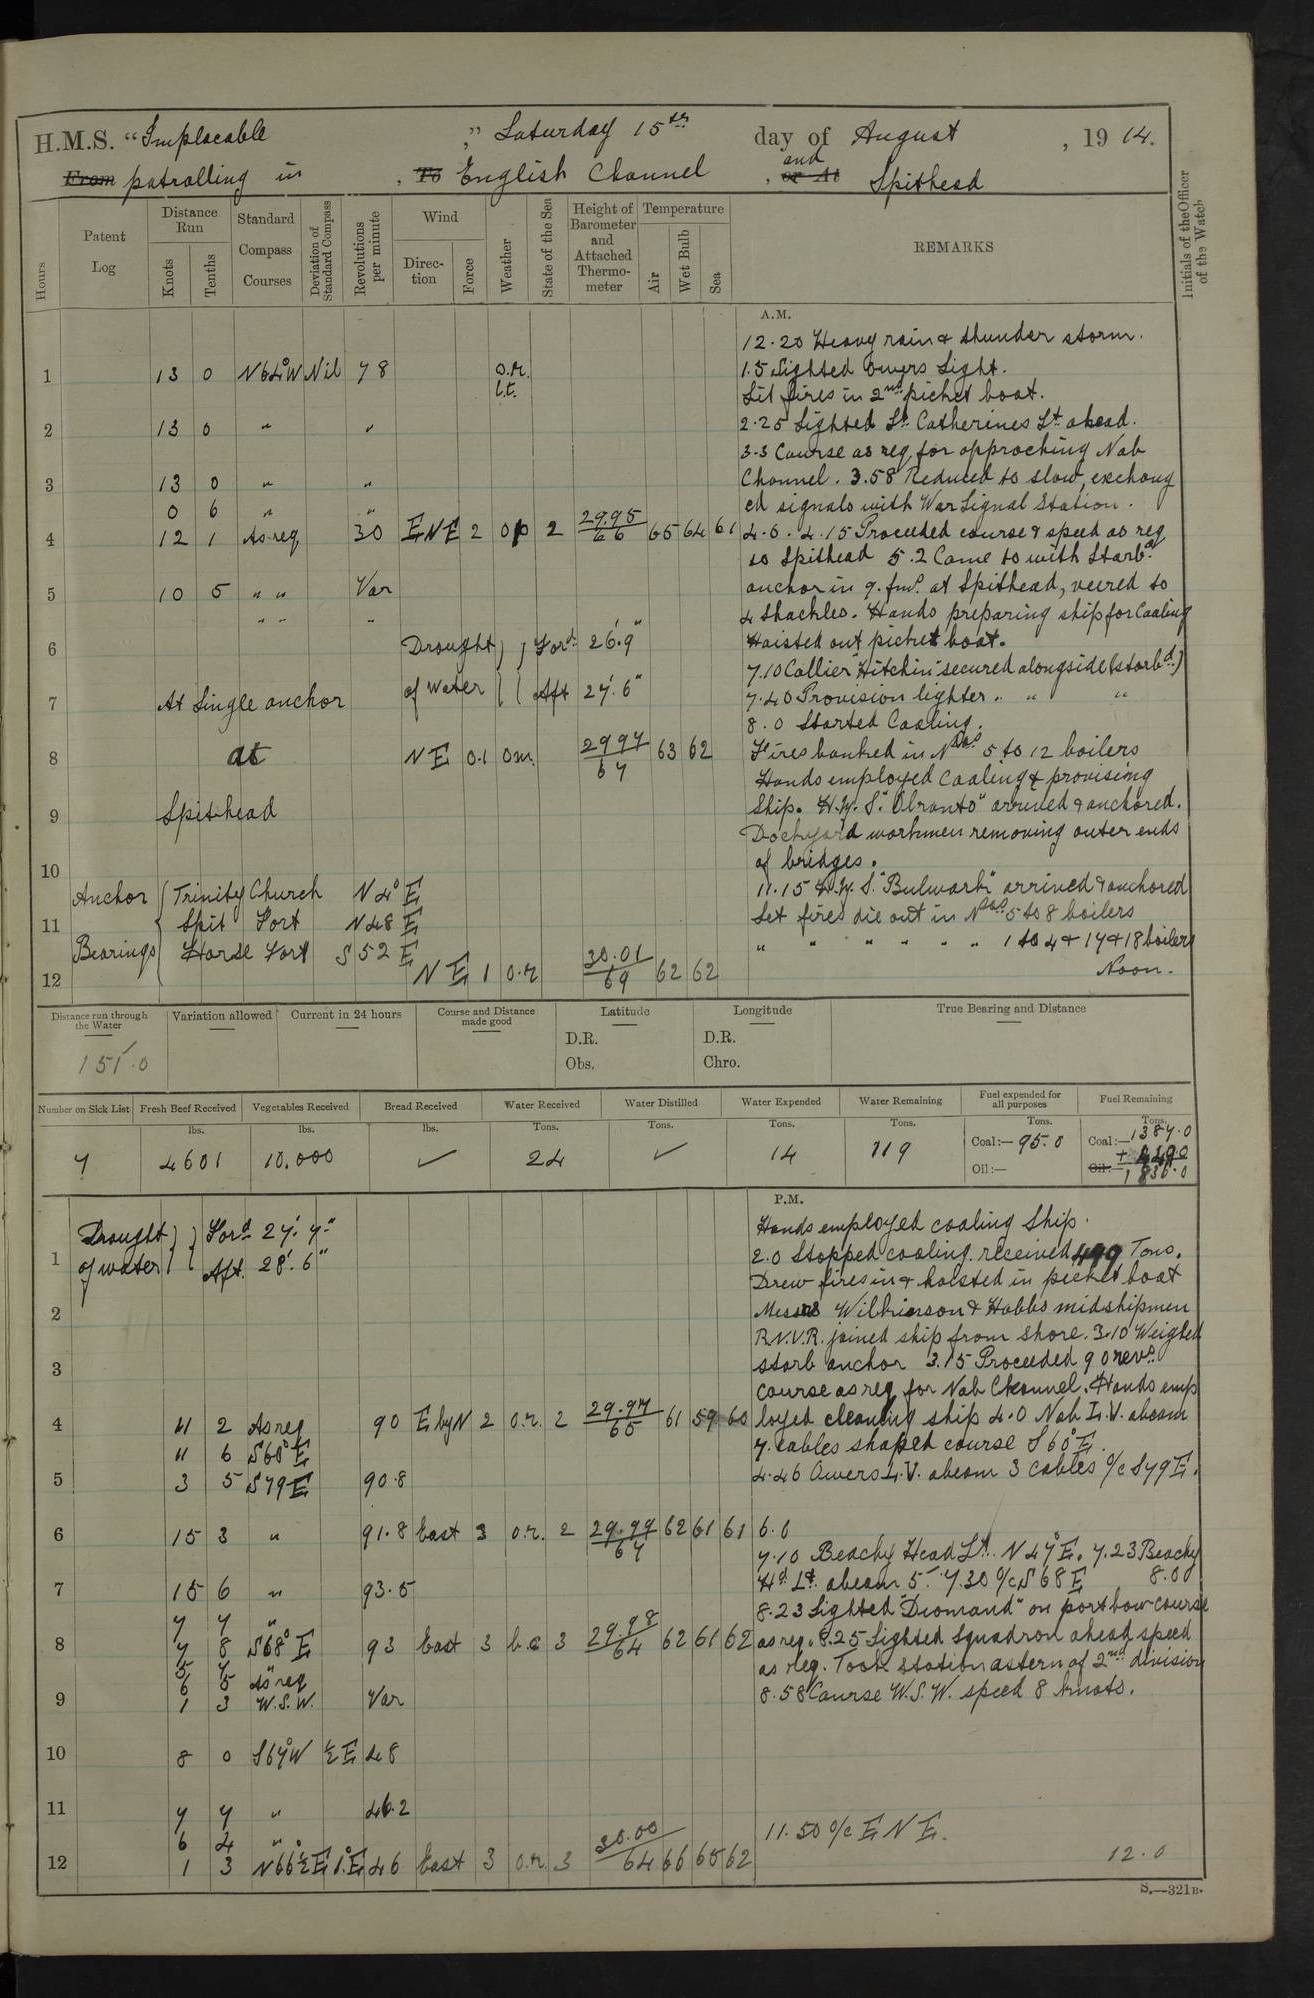 H.M.S. "Implacable ," Saturday 15th day of August , 1914.
From patrolling in , To English Channel , or At and Spithead
Hours
Patent Log
Distance Run
Knots
Tenths
Standard Compass Courses
Deviation of Standard Compass
Revolutions per minute
Wind
Direction
Force
Weather
State of the Sea
Height of Barometer and Attached Thermometer
Temperature
Air
Wet Bulb
Sea
REMARKS
Initials of the Officer of the Watch
A.M.
12.20 Heavy rain & thunder storm.
1 13 0 N64°W Nil 78 o.r. l.t. 1.5 Sighted Owers Light.
Lit fires in 2nd picket boat.
2 13 0 " " 2.25 Sighted St Catherines Lt ahead.
3.3 Course as req for approching Nab
3 13 0 " " Channel. 3.58 Reduced to slow, exchang
0 6 " " ed signals with War Signal Station.
4 12 1 As req 30 ENE 2 op 2 29.95 66 65 64 61 4.0. 4.15 Proceeded course & speed as req
to Spithead 5.2 Came to with Starbd
5 10 5 " " Var anchor in 9. fms. at Spithead, veered to
" " " 4 shackles. Hands preparing ship for Coaling
6 Drought of Water Ford 26'.9" Hoisted out picket boat.
7.10 Collier "Hitchin" secured alongside (starbd.)
7 At Single anchor Aft 27'.6" 7.40 Provision lighter " " "
8.0 Started Coaling.
8 at NE 0.1 om. 29.97 67 63 62 Fires banked in Nos 5 to 12 boilers
Hands employed Coaling & provising
9 Spithead Ship. H.M.S. "Otranto" arrived & anchored.
Dockyard workmen removing outer ends
10 of bridges.
Anchor Bearings Trinity Church N 4° E 11.15 H.M.S. "Bulwark" arrived & anchored
11 Spit Fort N 48 E Let fires die out in Nos 5 to 8 boilers
Horse Fort S 52 E " " " " " " 1 to 4 & 17 & 18 boilers
12 NE 1 o.r 30.01 69 62 62 Noon.
Distance run through the Water
Variation allowed
Current in 24 hours
Course and Distance made good
Latitude
Longitude
True Bearing and Distance
151.0
D.R.
Obs.
D.R.
Chro.
Number on Sick List
Fresh Beef Received
Vegetables Received
Bread Received
Water Received
Water Distilled
Water Expended
Water Remaining
Fuel expended for all purposes
Fuel Remaining
lbs. lbs. lbs. Tons. Tons. Tons. Tons. Tons. Tons.
7 4601 10.000 ✓ 24 ✓ 14 119 Coal:— 95.0 Coal:— 1387.0
Oil:— Oil:— + 1836.0
P.M.
Drought of water Ford 27'.7" Hands employed coaling Ship.
1 Aft. 28'.6" 2.0 Stopped coaling. received 499 Tons.
Drew fires in & hoisted in picket boat
2 Messrs Wilkinson & Hobbs midshipmen
R.N.V.R. joined ship from shore. 3.10 Weighed
3 starb anchor 3.15 Proceeded 90 revs.
course as req for Nab Channel. Hands emp
4 11 2 As req 90 E by N 2 o.r. 2 29.97 65 61 59 60 loyed cleaning ship 4.0 Nab L.V. abeam
11 6 S60°E 7. cables shaped course S60°E.
5 3 5 S79E 90.8 4.46 Owers L.V. abeam 3 cables o/c S79E.
6 15 3 " 91.8 East 3 o.r. 2 29.99 67 62 61 61 6.0
7.10 Beachy Head Lt. N 47°E. 7.23 Beachy
7 15 6 " 93.5 Hd Lt. abeam 5' 7.30 o/c S68E 8.0
7 7 " 8.23 Sighted "Diamond" on port bow course
8 7 8 S68°E 93 East 3 b.c 3 29.98 64 62 61 62 as req. 8.25 Sighted Squadron ahead speed
5 7 "
6 5 As req as req. Took station astern of 2nd division
9 1 3 W.S.W. Var 8.58 Course W.S.W. speed 8 knots.
10 8 0 S67°W ½E 48
11 7 7 " 46.2
6 4 " 11.50 o/c ENE.
12 1 3 N66½°E 1°E 46 East 3 o.r. 3 30.00 64 66 65 62 12.0
S.—321B.